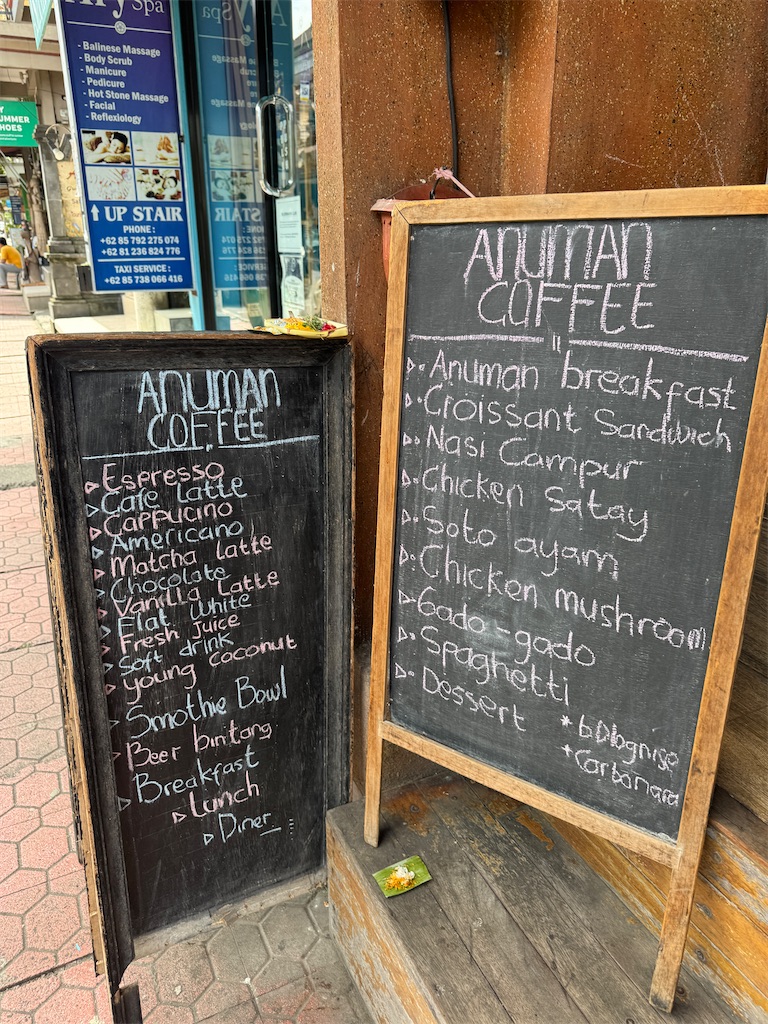 Spa
- Balinese Massage
- Body Scrub
- Manicure
- Pedicure
- Hot Stone Massage
- Facial
- Reflexiology
UP STAIR
PHONE :
+62 85 792 275 074
+62 81 236 824 776
TAXI SERVICE :
+62 85 738 066 416
UMMER
HOES
ANUMAN
COFFEE
Espresso
Cafe Latte
Cappucino
Americano
Matcha latte
Chocolate
Vanilla Latte
Flat White
Fresh Juice
Soft drink
young coconut
Smothie Bowl
Beer bintang
Breakfast
Lunch
Diner
ANUMAN
COFFEE
Anuman breakfast
Croissant Sandwich
Nasi Campur
Chicken Satay
Soto ayam
Chicken mushroom
Gado-gado
Spaghetti
Dessert
* bolognise
* Carbonara